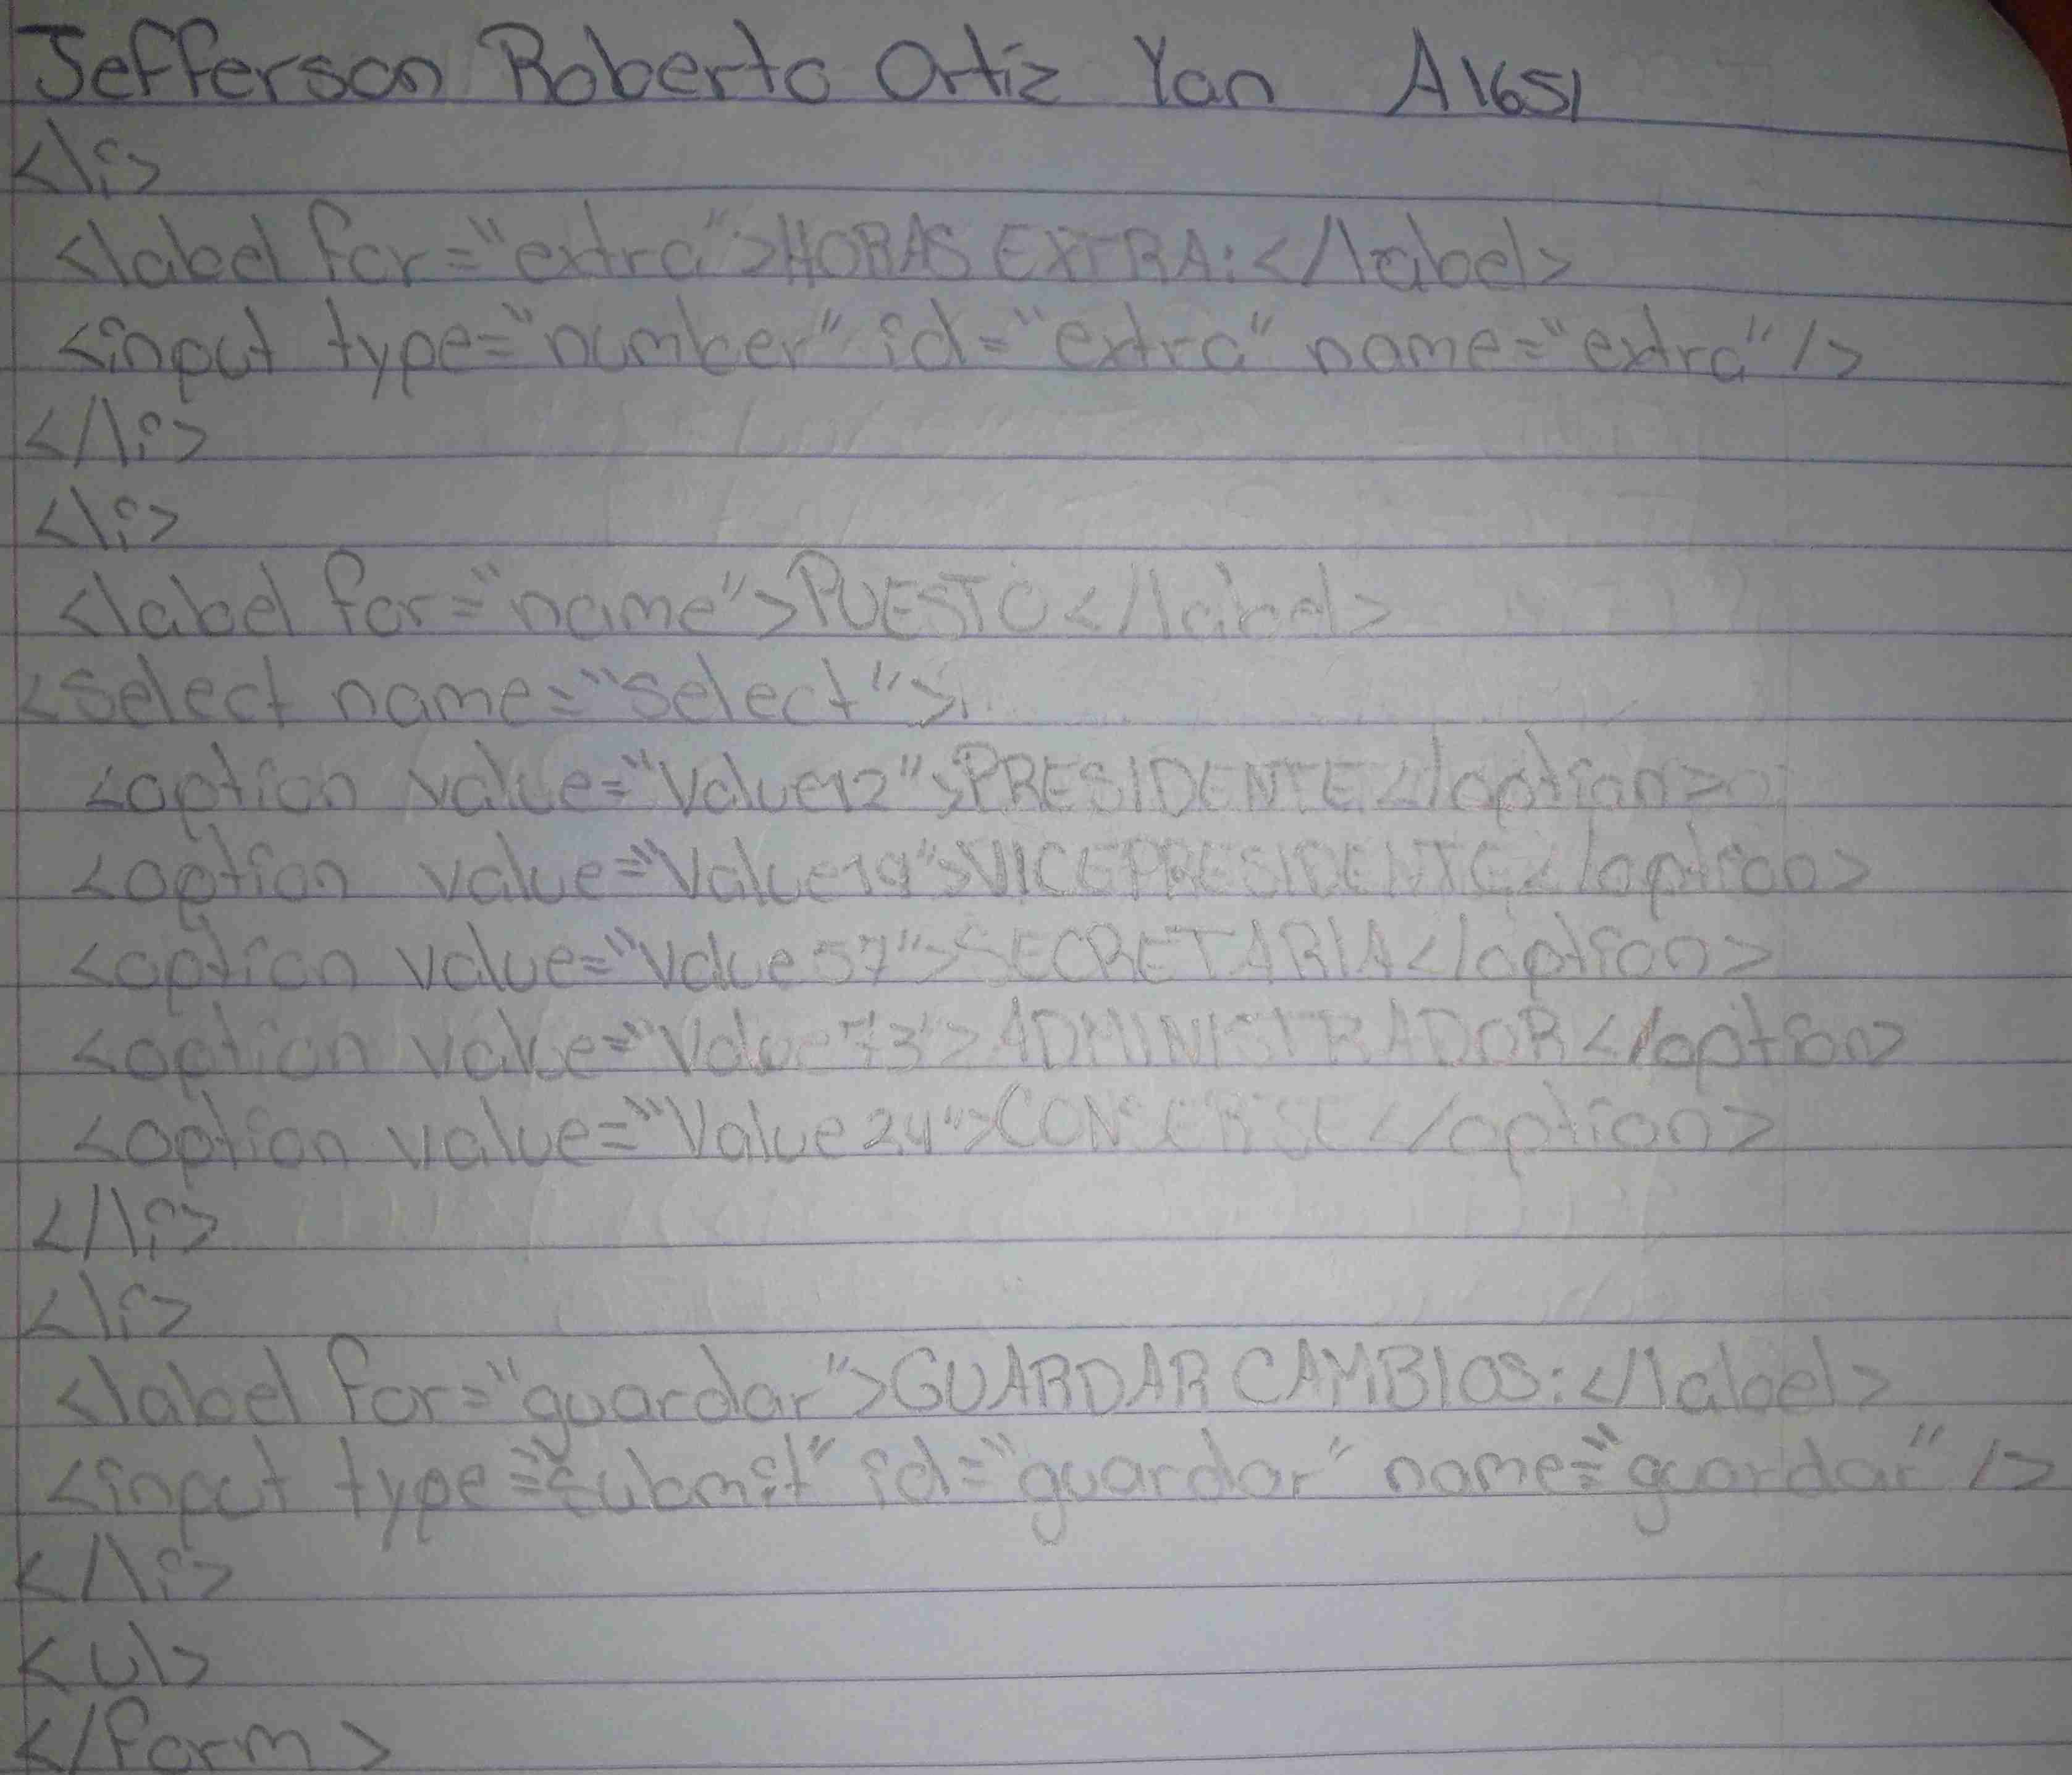 Jefferson Roberto Ortiz Yan A1651
<li>
<label for="extra">HORAS EXTRA:</label>
<input type="number" id="extra" name="extra"/>
</li>
<li>
<label for="name">PUESTO</label>
<select name="select">
<option value="Value12">PRESIDENTE</option>
<option value="Value19">VICEPRESIDENTE</option>
<option value="Value57">SECRETARIA</option>
<option value="Value73">ADMINISTRADOR</option>
<option value="Value24">CONSERSE</option>
</li>
<li>
<label for="guardar">GUARDAR CAMBIOS:</label>
<input type="submit" id="guardar" name="guardar" />
</li>
<ul>
</form>